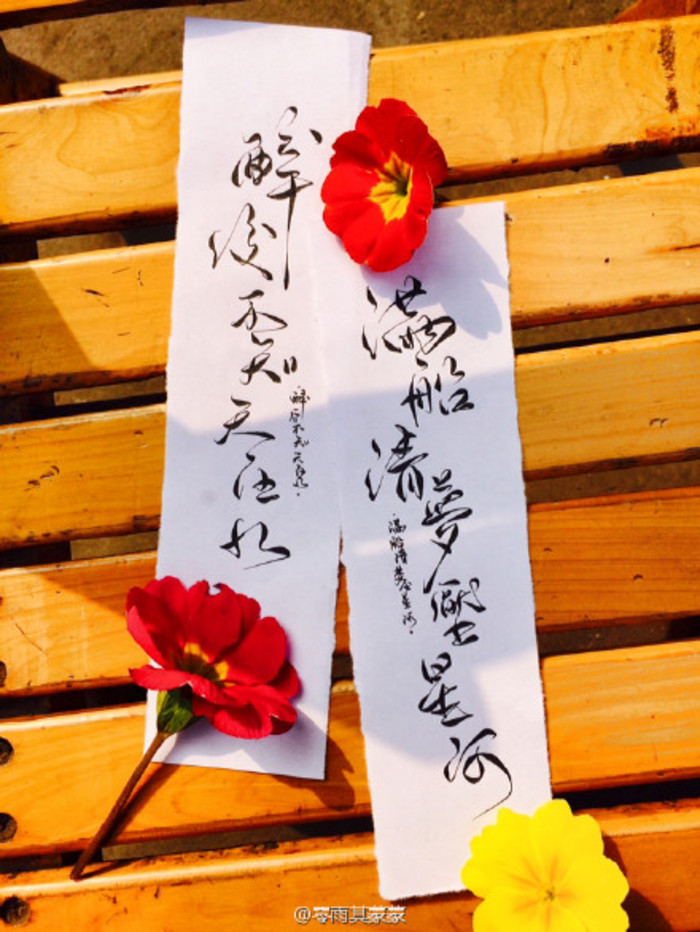 醉後不知天在水
醉后不知天在水。
滿船清夢壓星河
满船清梦压星河。
@零雨其蒙蒙